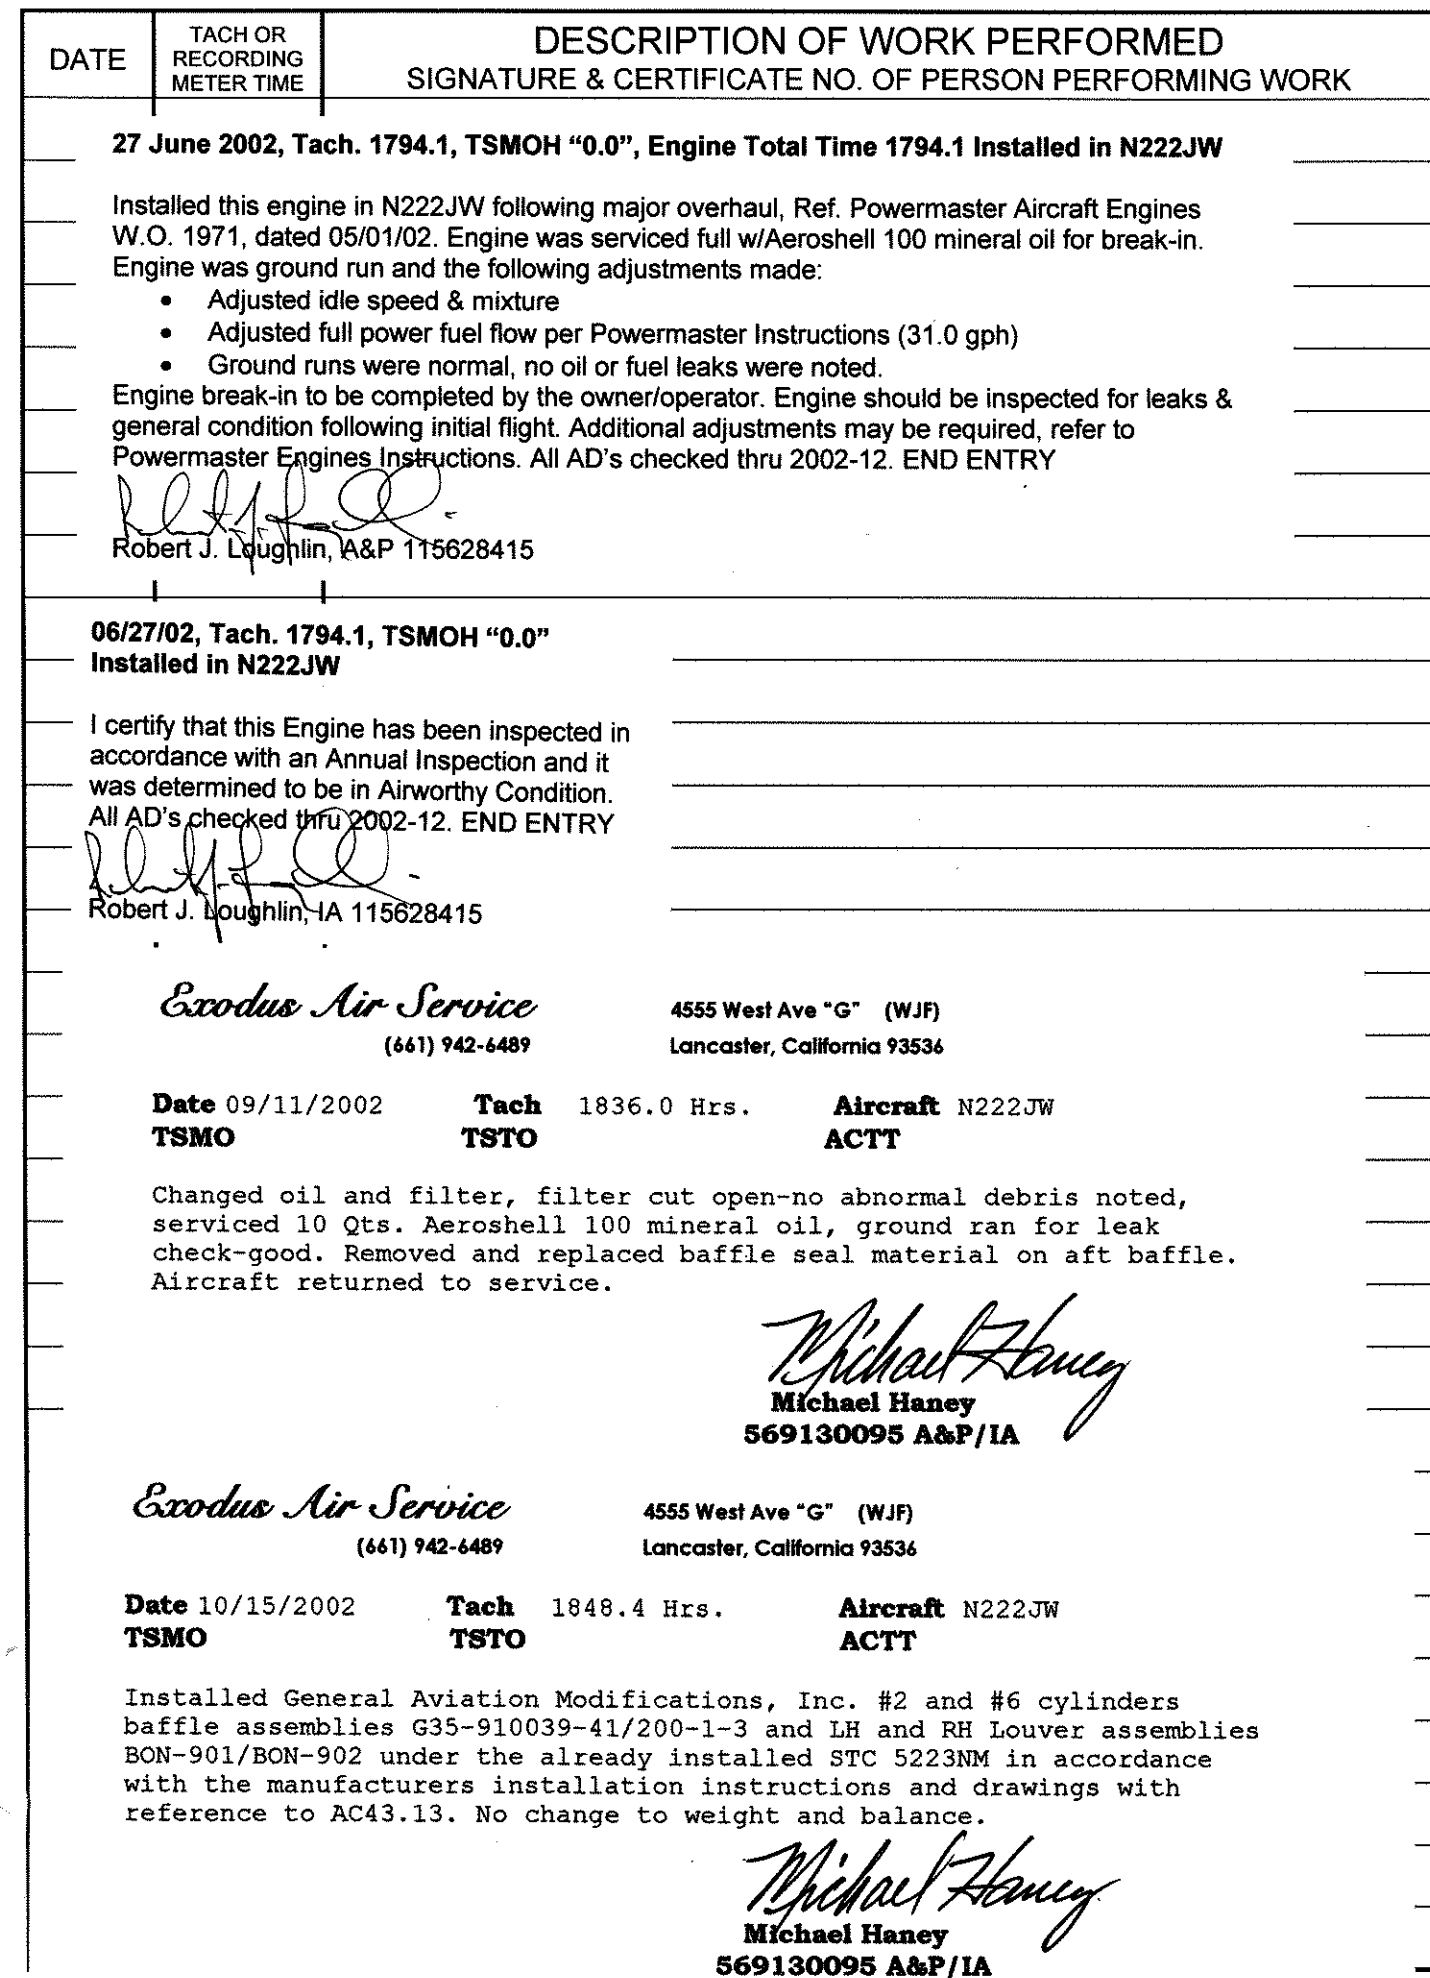 DATE
TACH OR
RECORDING
METER TIME
DESCRIPTION OF WORK PERFORMED
SIGNATURE & CERTIFICATE NO. OF PERSON PERFORMING WORK
27 June 2002, Tach. 1794.1, TSMOH “0.0”, Engine Total Time 1794.1 Installed in N222JW
Installed this engine in N222JW following major overhaul, Ref. Powermaster Aircraft Engines
W.O. 1971, dated 05/01/02. Engine was serviced full w/Aeroshell 100 mineral oil for break-in.
Engine was ground run and the following adjustments made:
• Adjusted idle speed & mixture
• Adjusted full power fuel flow per Powermaster Instructions (31.0 gph)
• Ground runs were normal, no oil or fuel leaks were noted.
Engine break-in to be completed by the owner/operator. Engine should be inspected for leaks &
general condition following initial flight. Additional adjustments may be required, refer to
Powermaster Engines Instructions. All AD's checked thru 2002-12. END ENTRY
Robert J. Loughlin, A&P 115628415
06/27/02, Tach. 1794.1, TSMOH “0.0”
Installed in N222JW
I certify that this Engine has been inspected in
accordance with an Annual Inspection and it
was determined to be in Airworthy Condition.
All AD's checked thru 2002-12. END ENTRY
Robert J. Loughlin, IA 115628415
Exodus Air Service 4555 West Ave “G” (WJF)
(661) 942-6489 Lancaster, California 93536
Date 09/11/2002 Tach 1836.0 Hrs. Aircraft N222JW
TSMO TSTO ACTT
Changed oil and filter, filter cut open-no abnormal debris noted,
serviced 10 Qts. Aeroshell 100 mineral oil, ground ran for leak
check-good. Removed and replaced baffle seal material on aft baffle.
Aircraft returned to service.
Michael Haney
Michael Haney
569130095 A&P/IA
Exodus Air Service 4555 West Ave “G” (WJF)
(661) 942-6489 Lancaster, California 93536
Date 10/15/2002 Tach 1848.4 Hrs. Aircraft N222JW
TSMO TSTO ACTT
Installed General Aviation Modifications, Inc. #2 and #6 cylinders
baffle assemblies G35-910039-41/200-1-3 and LH and RH Louver assemblies
BON-901/BON-902 under the already installed STC 5223NM in accordance
with the manufacturers installation instructions and drawings with
reference to AC43.13. No change to weight and balance.
Michael Haney
Michael Haney
569130095 A&P/IA